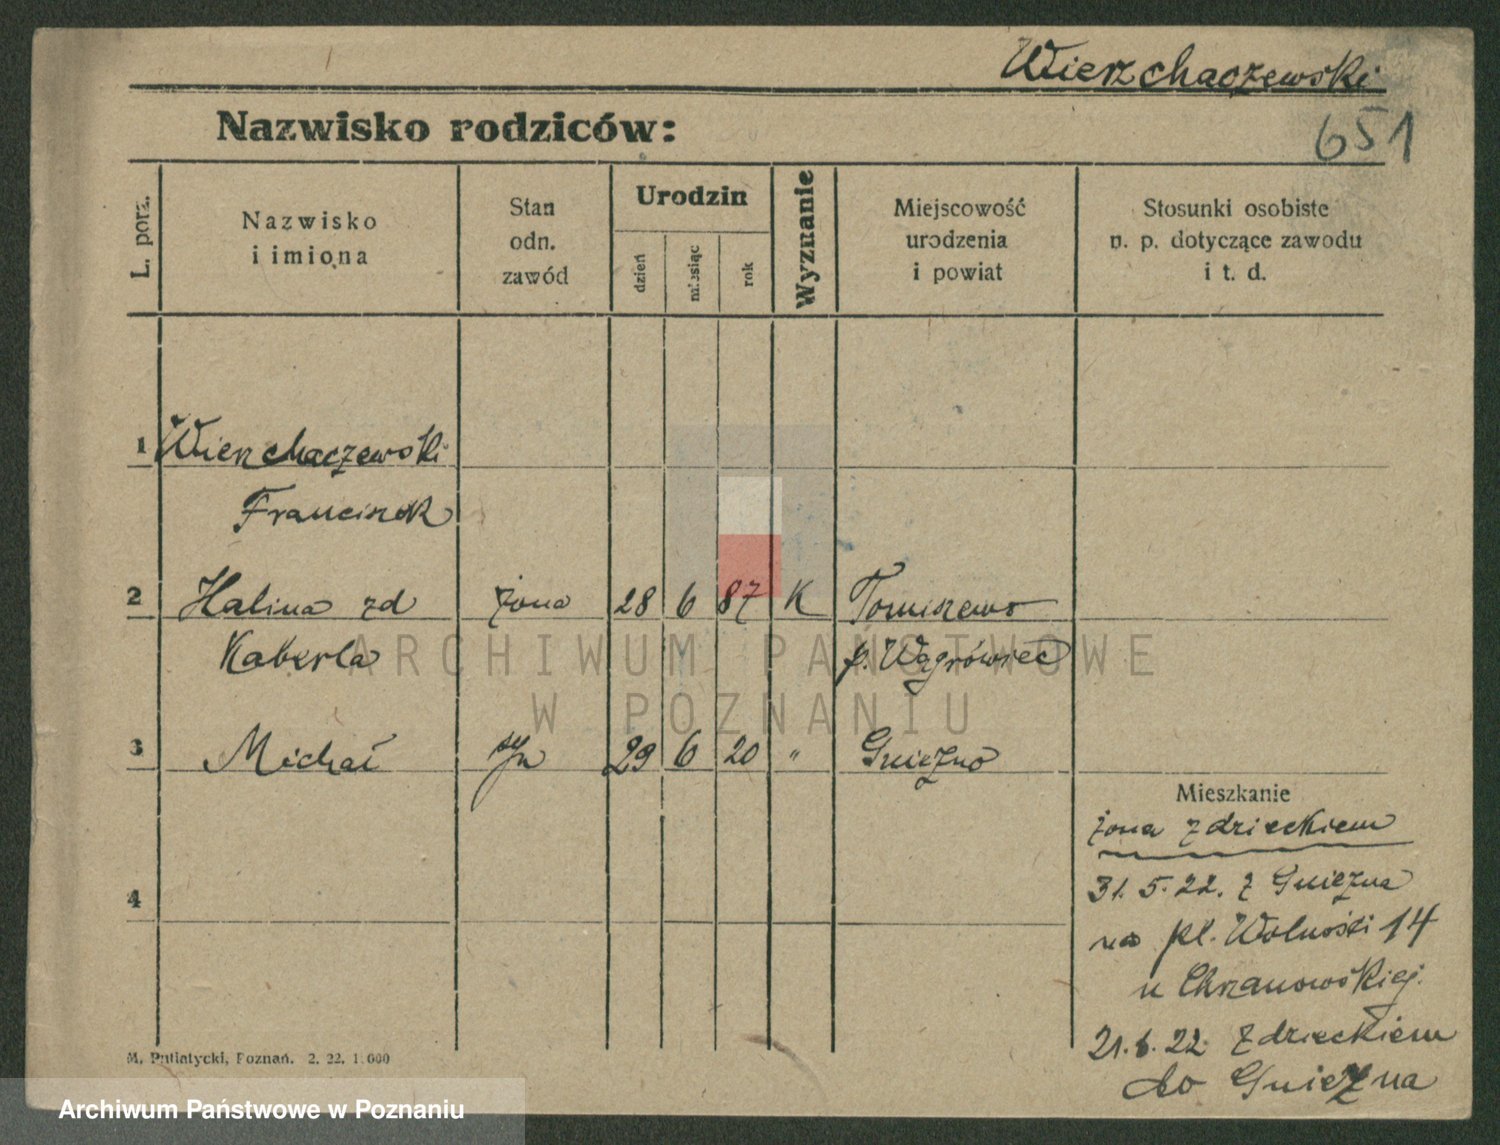 Wierzchaczewski
651
Nazwisko rodziców:
L. porz.
Nazwisko
i imiona
Stan
odn.
zawód
Urodzin
dzień
miesiąc
rok
Wyznanie
Miejscowość
urodzenia
i powiat
Stosunki osobiste
n. p. dotyczące zawodu
i t. d.
1 Wierzchaczewski
Franciszek
2 Halina zd żona 28 6 87 K Tomiszewo
Kaberla p. Wągrówiec
3 Michał syn 29 6 20 " Gniezno
4
Mieszkanie
żona z dzieckiem
31.5.22. z Gniezna
na pl. Wolności 14
u Chrzanowskiej.
21.6.22. z dzieckiem
do Gniezna
M. Putiatycki, Poznań. 2. 22. 1.000
ARCHIWUM PAŃSTWOWE
W POZNANIU
Archiwum Państwowe w Poznaniu